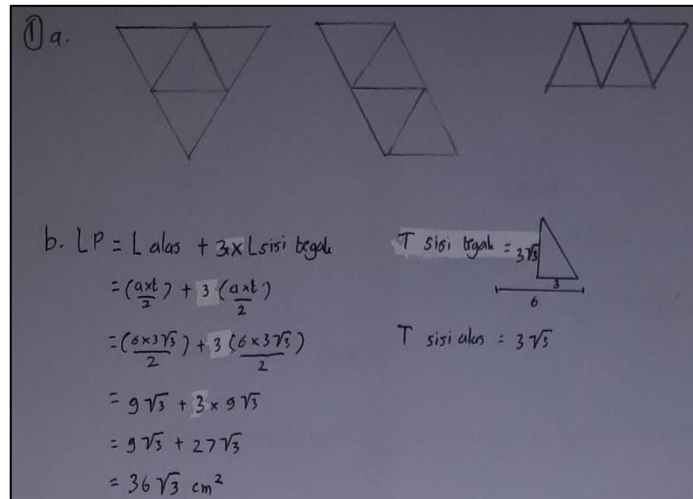 ① a.
b. LP = L alas + 3 x L sisi tegak
= (axt/2) + 3 (axt/2)
= (6 x 3√3/2) + 3 (6 x 3√3/2)
= 9√3 + 3 x 9√3
= 9√3 + 27√3
= 36√3 cm²
T sisi tegak = 3√3
3
6
T sisi alas = 3√3